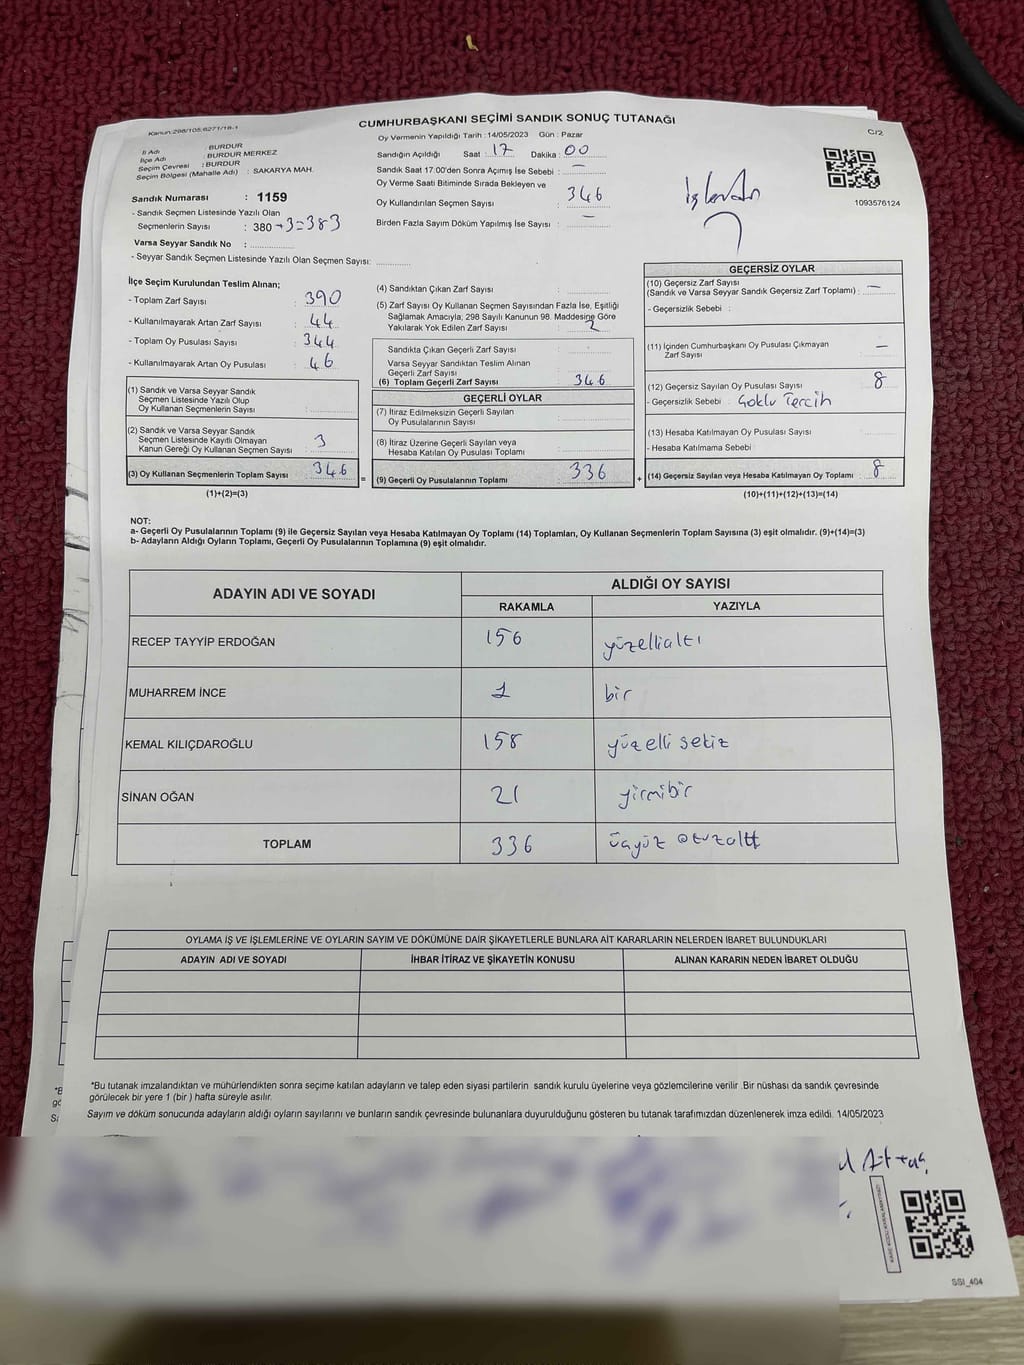 Kanun:298/105;6271/18-1
CUMHURBAŞKANI SEÇİMİ SANDIK SONUÇ TUTANAĞI
C/2
Oy Vermenin Yapıldığı Tarih : 14/05/2023 Gün : Pazar
İl Adı : BURDUR
İlçe Adı : BURDUR MERKEZ
Seçim Çevresi : BURDUR
Seçim Bölgesi (Mahalle Adı) : SAKARYA MAH.
Sandık Numarası : 1159
- Sandık Seçmen Listesinde Yazılı Olan
Seçmenlerin Sayısı : 380+3=383
Varsa Seyyar Sandık No :
- Seyyar Sandık Seçmen Listesinde Yazılı Olan Seçmen Sayısı:
Sandığın Açıldığı Saat : 17 Dakika : 00
Sandık Saat 17:00'den Sonra Açımış İse Sebebi : —
Oy Verme Saati Bitiminde Sırada Bekleyen ve
Oy Kullandırılan Seçmen Sayısı : 346
Birden Fazla Sayım Döküm Yapılmış İse Sayısı : —
1093576124
İlçe Seçim Kurulundan Teslim Alınan;
- Toplam Zarf Sayısı : 390
- Kullanılmayarak Artan Zarf Sayısı : 44
- Toplam Oy Pusulası Sayısı : 344
- Kullanılmayarak Artan Oy Pusulası : 46
(1) Sandık ve Varsa Seyyar Sandık
Seçmen Listesinde Yazılı Olup
Oy Kullanan Seçmenlerin Sayısı :
(2) Sandık ve Varsa Seyyar Sandık
Seçmen Listesinde Kayıtlı Olmayan
Kanun Gereği Oy Kullanan Seçmen Sayısı : 3
(3) Oy Kullanan Seçmenlerin Toplam Sayısı : 346
(1)+(2)=(3)
=
(4) Sandıktan Çıkan Zarf Sayısı :
(5) Zarf Sayısı Oy Kullanan Seçmen Sayısından Fazla İse, Eşitliği
Sağlamak Amacıyla, 298 Sayılı Kanunun 98. Maddesine Göre
Yakılarak Yok Edilen Zarf Sayısı : 2
Sandıkta Çıkan Geçerli Zarf Sayısı :
Varsa Seyyar Sandıktan Teslim Alınan
Geçerli Zarf Sayısı :
(6) Toplam Geçerli Zarf Sayısı : 346
GEÇERLİ OYLAR
(7) İtiraz Edilmeksizin Geçerli Sayılan
Oy Pusulalarının Sayısı :
(8) İtiraz Üzerine Geçerli Sayılan veya
Hesaba Katılan Oy Pusulası Toplamı :
(9) Geçerli Oy Pusulalarının Toplamı : 336
+
GEÇERSİZ OYLAR
(10) Geçersiz Zarf Sayısı
(Sandık ve Varsa Seyyar Sandık Geçersiz Zarf Toplamı) : —
- Geçersizlik Sebebi :
(11) İçinden Cumhurbaşkanı Oy Pusulası Çıkmayan
Zarf Sayısı : —
(12) Geçersiz Sayılan Oy Pusulası Sayısı : 8
- Geçersizlik Sebebi : Çoklu Tercih
(13) Hesaba Katılmayan Oy Pusulası Sayısı :
- Hesaba Katılmama Sebebi
(14) Geçersiz Sayılan veya Hesaba Katılmayan Oy Toplamı : 8
(10)+(11)+(12)+(13)=(14)
NOT:
a- Geçerli Oy Pusulalarının Toplamı (9) ile Geçersiz Sayılan veya Hesaba Katılmayan Oy Toplamı (14) Toplamları, Oy Kullanan Seçmenlerin Toplam Sayısına (3) eşit olmalıdır. (9)+(14)=(3)
b- Adayların Aldığı Oyların Toplamı, Geçerli Oy Pusulalarının Toplamına (9) eşit olmalıdır.
ADAYIN ADI VE SOYADI ALDIĞI OY SAYISI
RAKAMLA YAZIYLA
RECEP TAYYİP ERDOĞAN 156 yüzellialtı
MUHARREM İNCE 1 bir
KEMAL KILIÇDAROĞLU 158 yüzelli sekiz
SİNAN OĞAN 21 yirmibir
TOPLAM 336 üçyüz otuzaltı
OYLAMA İŞ VE İŞLEMLERİNE VE OYLARIN SAYIM VE DÖKÜMÜNE DAİR ŞİKAYETLERLE BUNLARA AİT KARARLARIN NELERDEN İBARET BULUNDUKLARI
ADAYIN ADI VE SOYADI İHBAR İTİRAZ VE ŞİKAYETİN KONUSU ALINAN KARARIN NEDEN İBARET OLDUĞU
*Bu tutanak imzalandıktan ve mühürlendikten sonra seçime katılan adayların ve talep eden siyasi partilerin sandık kurulu üyelerine veya gözlemcilerine verilir .Bir nüshası da sandık çevresinde
görülecek bir yere 1 (bir ) hafta süreyle asılır.
Sayım ve döküm sonucunda adayların aldığı oyların sayılarını ve bunların sandık çevresinde bulunanlara duyurulduğunu gösteren bu tutanak tarafımızdan düzenlenerek imza edildi. 14/05/2023
SSI_404